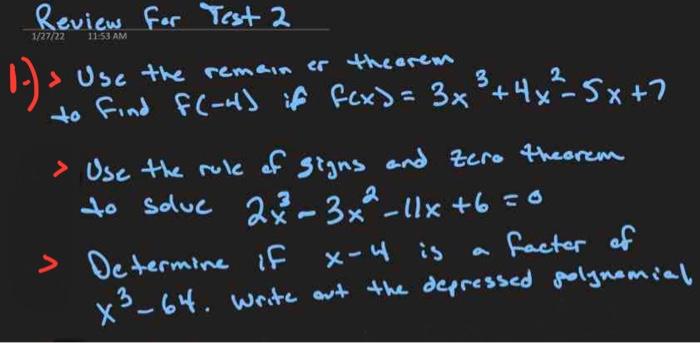 Review For Test 2
1/27/22 11:53 AM
1.) > Use the remainer theorem
to find f(-4) if f(x) = 3x³+4x²-5x+7
> Use the rule of signs and zero theorem
to solve 2x³-3x²-11x+6=0
> Determine if x-4 is a factor of
x³-64. Write out the depressed polynomial